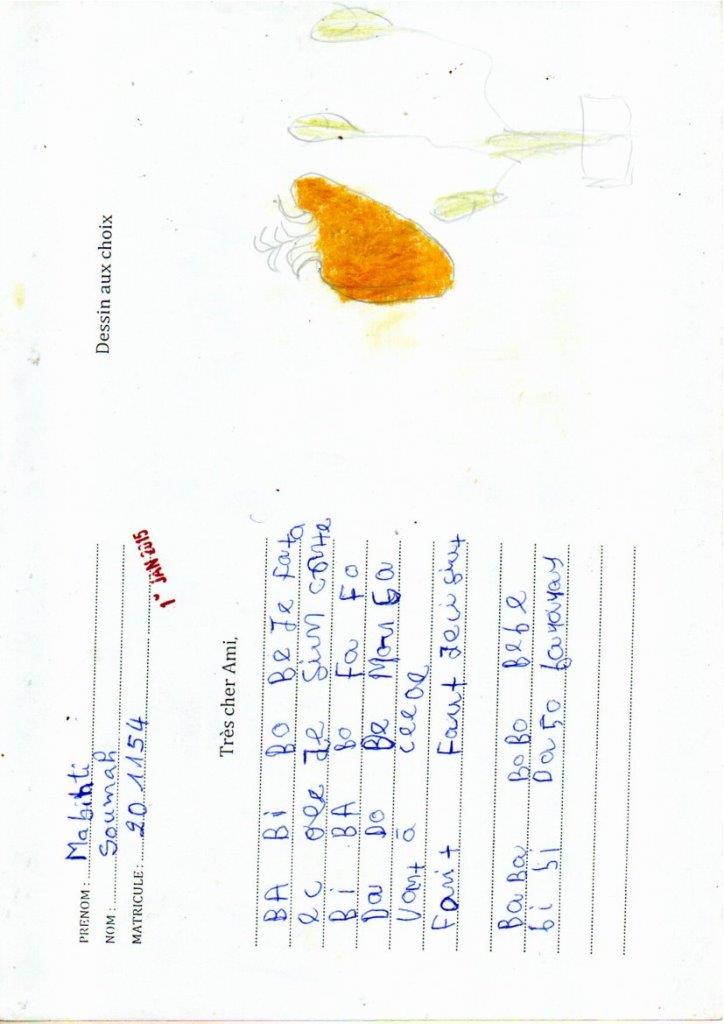 PRENOM : Mabinti
NOM : Soumah
MATRICULE : 20 1154
1° JAN 2015
Très cher Ami,
BA Bi BO Be Je Fata
ec ole Je Sium conte
Bi BA Bo Fa Fo
Da Do De Mon Ga
Vant à
Fant Fant
BaBa BoBo BeBe
bi bi Da
Dessin aux choix